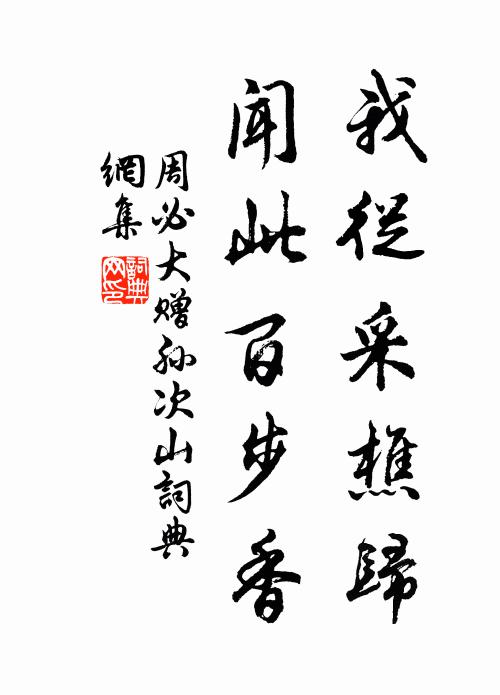 我從采樵歸
聞此百步香
周必大赠孙次山詞典
網集
詞典網印